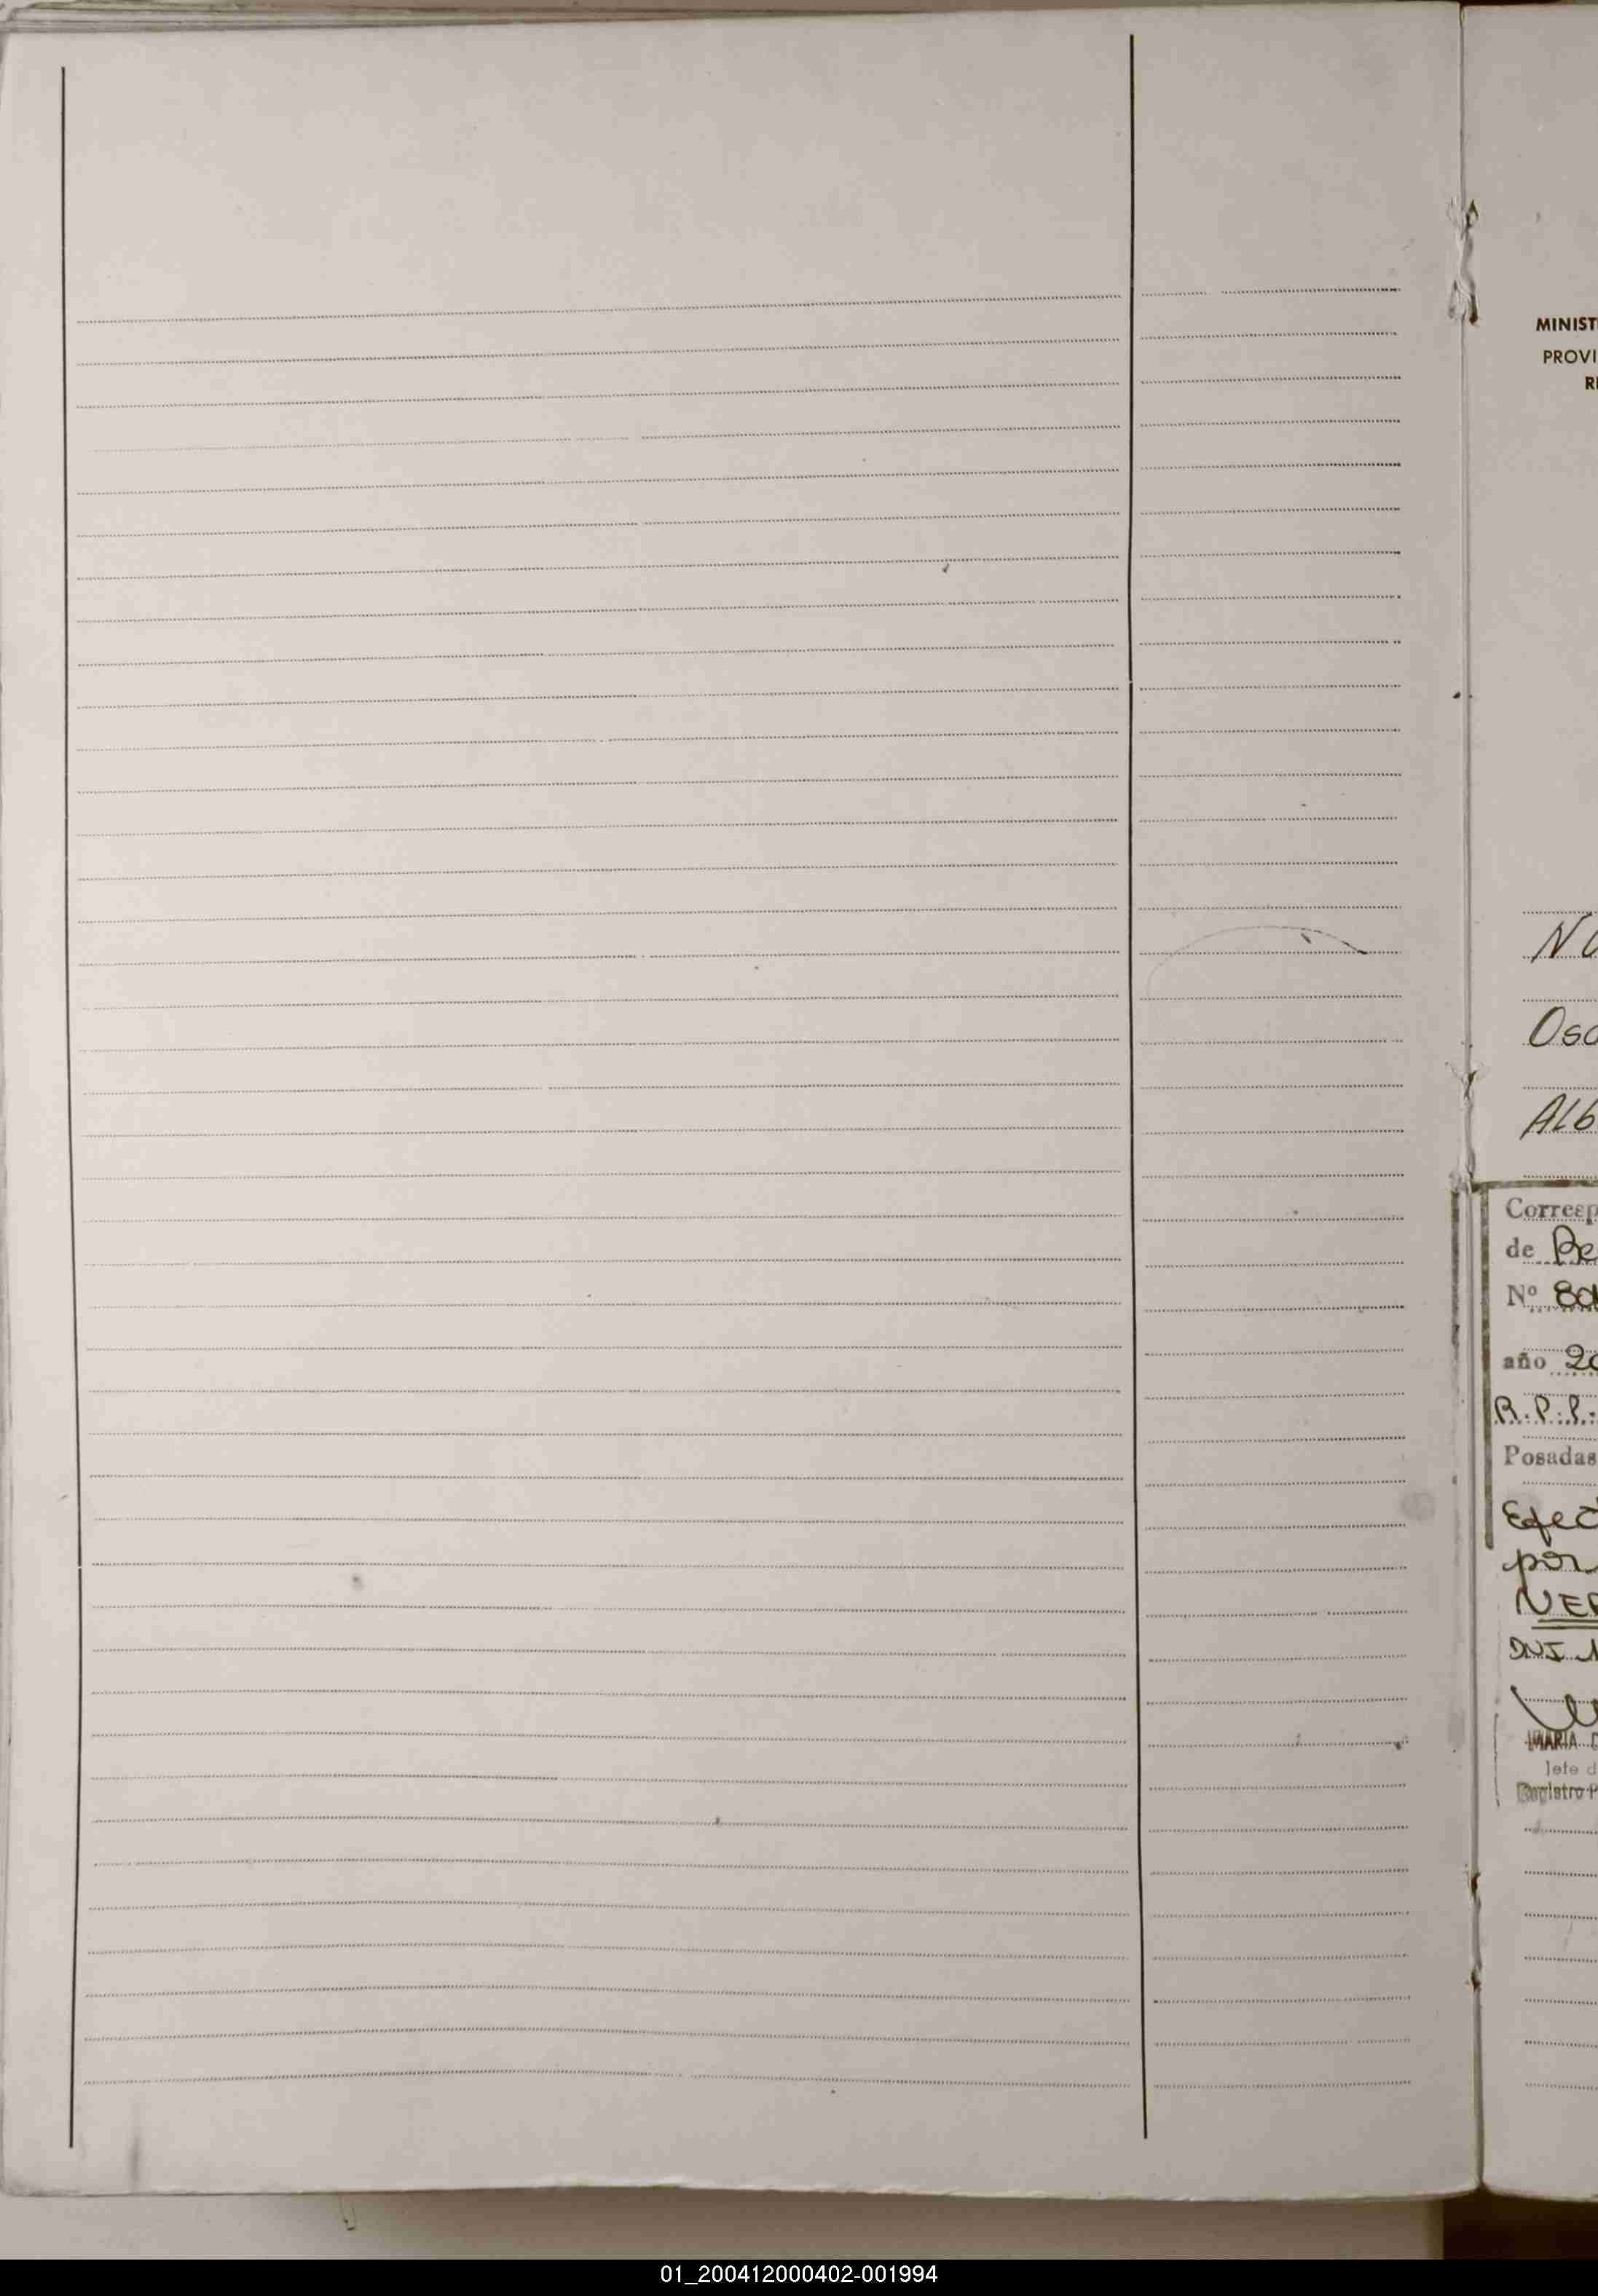 MINIST
PROVI
R
N
Osc
Alb
Corresp
de Be
Nº 80
año 20
R.P.P.
Posadas
Efec
por
NER
DNI 1
MARIA
Jefe d
Registro P
01_200412000402-001994